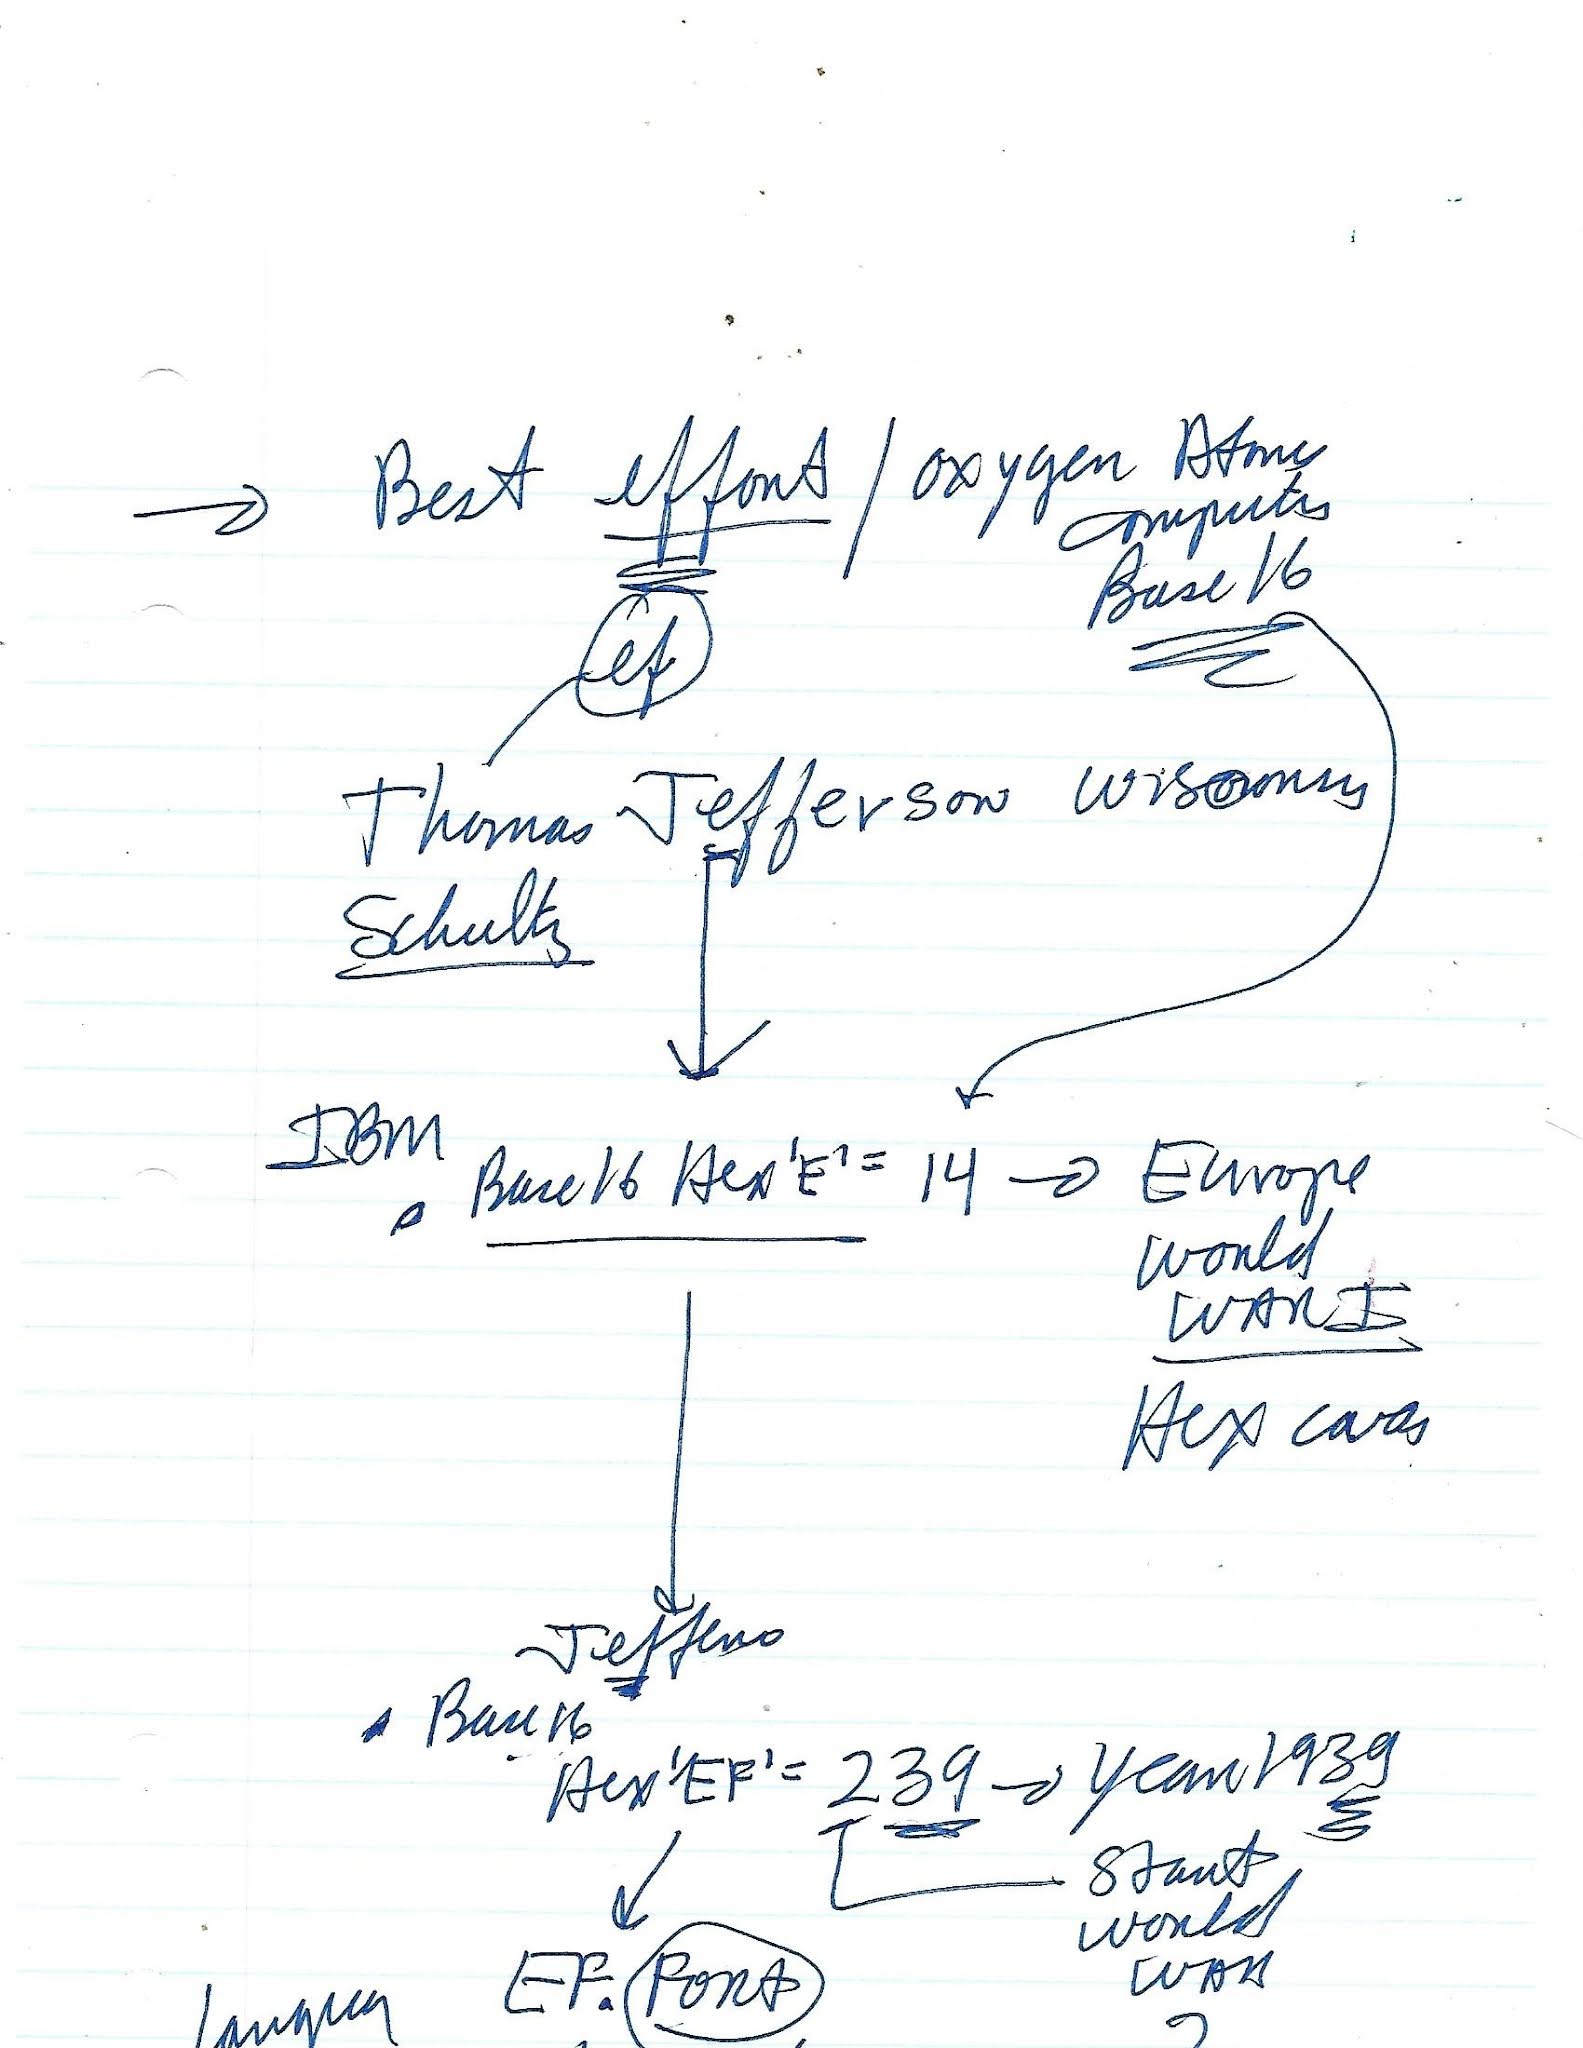 Best effort / oxygen Atoms
computers
Base 16
ef
Thomas Jefferson Wisconsin
Schultz
IBM
Base 16 Hex 'E' = 14 → Europe
World
WAR I
Hex
Jefferso
Base 16
Hex 'EF' = 239 → Year 1939
Start
World
WAR
2
EF. Fort